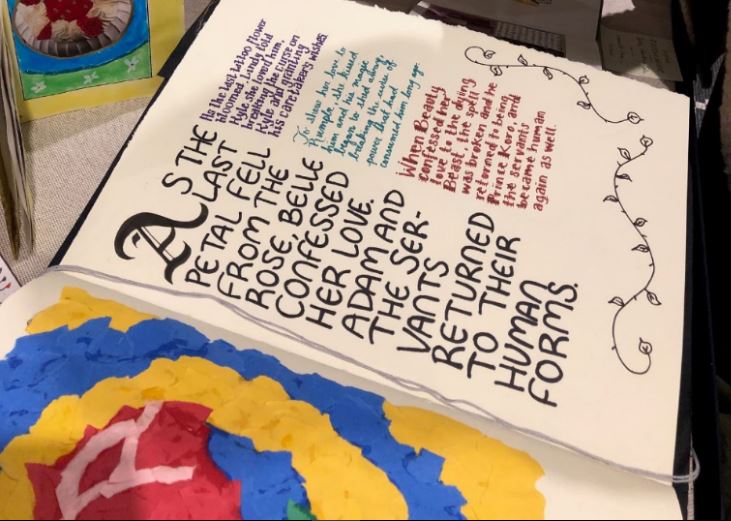 AS THE
LAST
PETAL FELL
FROM THE
ROSE, BELLE
CONFESSED
HER LOVE.
ADAM AND
THE SER-
VANTS
RETURNED
TO THEIR
HUMAN
FORMS.
As the last tattoo flower
bloomed, Lindy told
Kyle she loved him,
breaking the curse on
Kyle and granting
his caretakers wishes
To show her love to
Rumple, she kissed
him and his magic
began to shed
breaking the curse of
power that had
consumed him long ago
When Beauty
confessed her
love to the dying
Beast, the spell
was broken and he
returned to being
Prince Koro, and
the servants
became human
again as well.